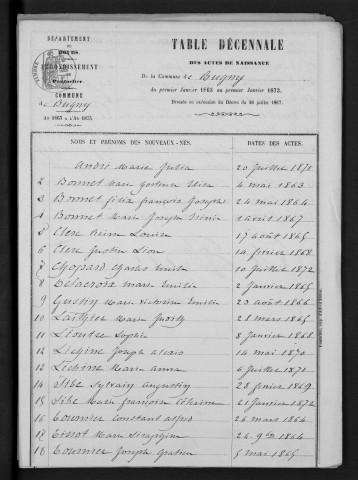 DÉPARTEMENT
du
DOUBS.
ARRONDISSEMENT
de
Pontarlier
COMMUNE
de Bugny
An 1863 à l'An 1873.
TABLE DÉCENNALE
DES ACTES DE NAISSANCE
De la Commune de Bugny
du premier Janvier 1863 au premier Janvier 1873.
Dressée en exécution du Décret du 20 juillet 1807.
NOMS ET PRÉNOMS DES NOUVEAUX-NÉS. DATES DES ACTES.
André Marie Julia 20 Juillet 1871
2 Bonnet Marie 4 mai 1863
3 Bonnet félix françois Joseph 24 mai 1864
4 Bonnet Marie Joseph 1 août 1867
5 Clerc Louise 17 août 1865
6 Clerc Justin Léon 14 février 1868
7 Chopard Charles Emile 10 Juillet 1872
8 Delacroix Marie Emilie 2 Janvier 1865
9 Gustin Marie Emilie 23 août 1866
10 Laithier Marie 28 mars 1865
11 Lioutre Sophie 8 Janvier 1868
12 Joseph alexis 14 mai 1870
13 Marie anna 6 Juillet 1871
14 Sylvain augustin 28 février 1869
15 Marie françoise 21 Janvier 1872
16 Tournier Constant alfred 26 mars 1864
17 Tissot Marie Séraphine 24 9bre 1864
18 Tournier Joseph gratien 5 mai 1865